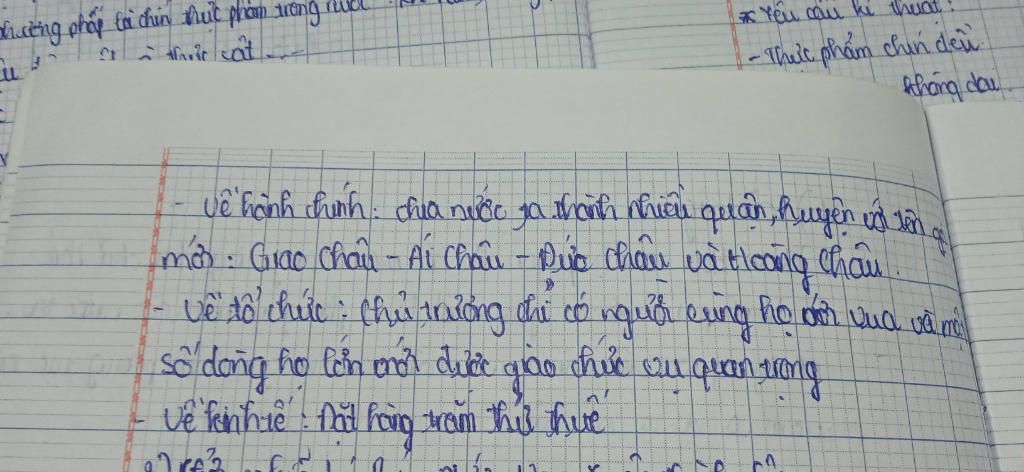 phương pháp là chín thực phẩm trong nước
* Yêu cầu kĩ thuật:
- Thực phẩm chín đều
không dai
- Về hành chính: chia nước ra thành nhiều quận, huyện với tên gọi
mới: Giao Châu - Ái Châu - Đức Châu và Hoàng Châu.
- Về tổ chức: chủ trương chỉ có người cùng họ với vua và một
số dòng họ lớn mới được giao chức vụ quan trọng
- Về kinh tế: Đặt hàng trăm thứ thuế